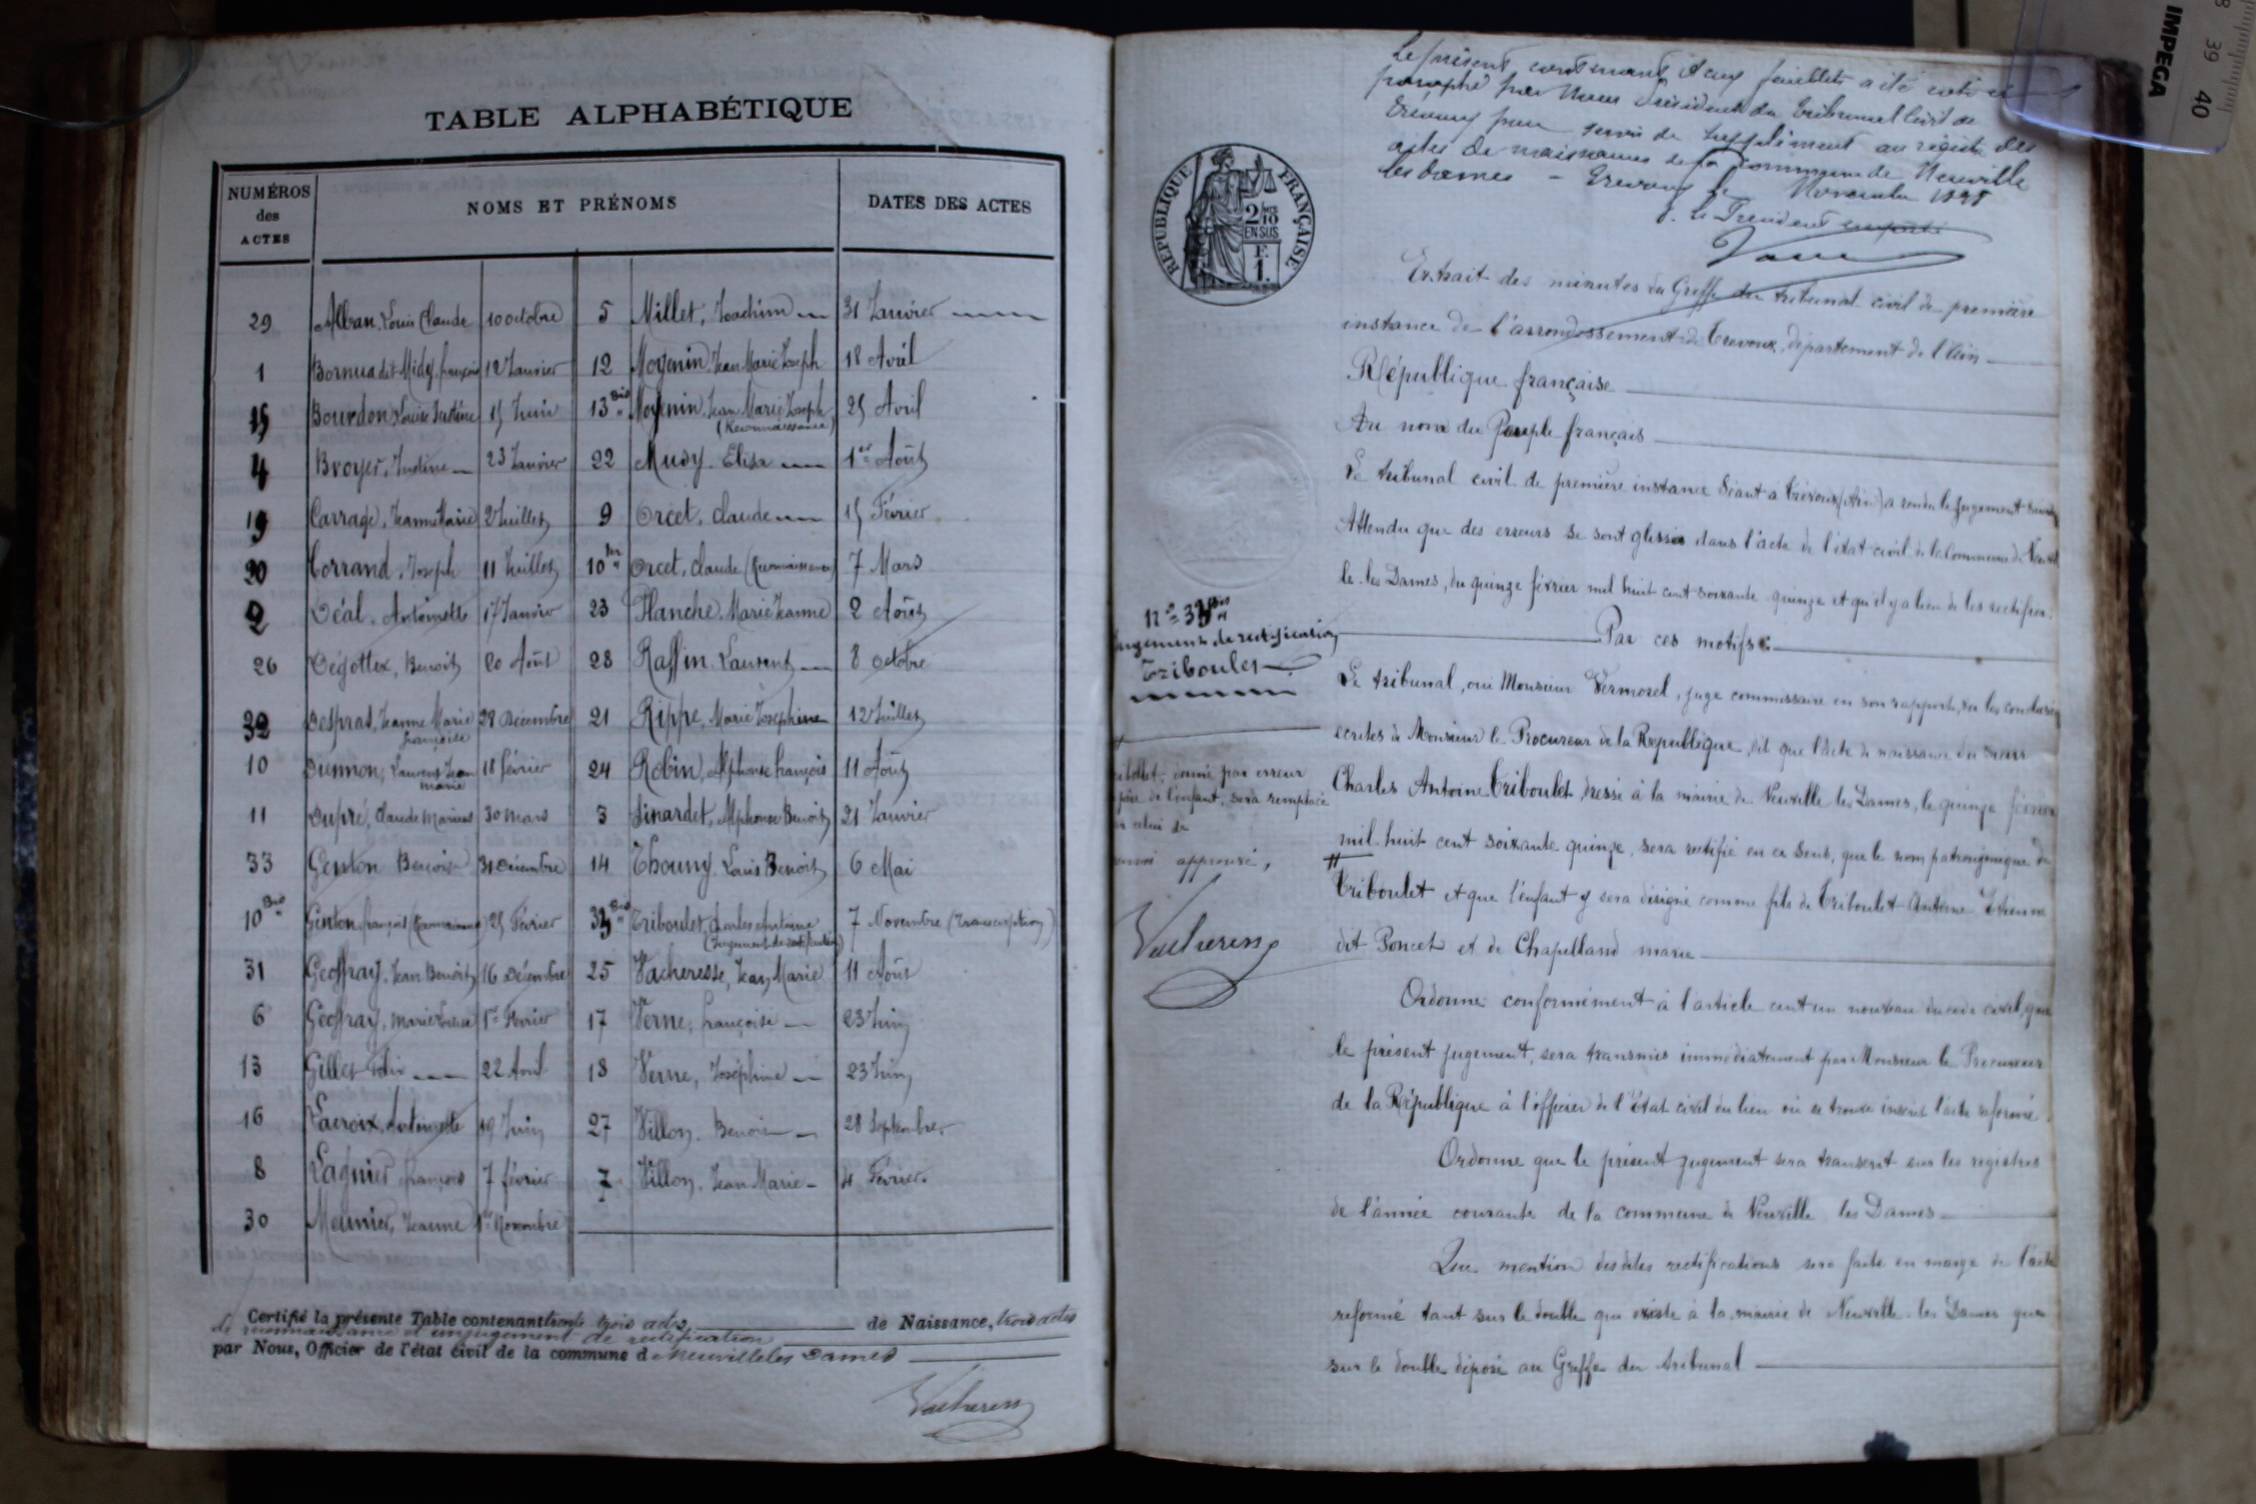 TABLE ALPHABÉTIQUE
NUMÉROS des ACTES
NOMS ET PRÉNOMS
DATES DES ACTES
29 Alban, Louis Claude 10 octobre
1 Bornua dit Midy, françois 12 Janvier
15 Bourdon, Louise Justine 15 Juin
4 Broyer, Justine 23 Janvier
19 Carrage, Jeanne Marie 2 Juillet
20 Corrand, Joseph 11 Juillet
2 Déal, Antoinette 17 Janvier
26 Dégottex, Benoit 20 Août
32 Desprat, Jeanne Marie 28 Décembre
françoise
10 Laurent Jean 18 février
marie
11 Dupré, Claude Marius 30 mars
33 Genton Benoit 31 Décembre
10 Bis Genton, françois (Reconnaissance) 25 Février
31 Geoffray, Jean Benoit 16 Décembre
6 Geoffray, Marie Louise 1er Février
13 Gillet 22 Avril
16 Lacroix, Antoinette 19 Juin
8 Lagnier, françois 7 février
30 Meunier, Jeanne 1er Novembre
5 Millet, Joachim 31 Janvier
12 Moyenin, Jean Marie Joseph 18 Avril
13 Bis Moyenin, Jean Marie Joseph 25 Avril
(Reconnaissance)
22 Mury, Elisa 1er Août
9 Orcet, Claude 15 Février
10 ter Orcet, Claude (Reconnaissance) 7 Mars
23 Planche, Marie Jeanne 2 Août
28 Raffin, Laurent 8 octobre
21 Rippe, Marie Joséphine 12 Juillet
24 Robin, Alphonse François 11 Août
3 Sinardet, Alphonse Benoit 21 Janvier
14 Thouny, Louis Benoit 6 Mai
33 Bis Triboulet, Charles Antoine 7 Novembre (Transcription)
(Jugement de rectification)
25 Vacheresse, Jean Marie 11 Août
17 Verne, françoise 23 Juin
18 Verne, Joséphine 23 Juin
27 Villon, Benoit 28 Septembre
7 Villon, Jean Marie 4 Février
Certifié la présente Table contenant trente trois actes de Naissance, trois actes
de reconnaissance et un jugement de rectification
par Nous, Officier de l'état civil de la commune d Neuville les Dames
Vacheress
Le présent, contenant deux feuillets a été coté et
paraphé par Nous Président du Tribunal Civil de
Trevoux pour servir de supplément au registre des
actes de naissances de la commune de Neuville
les Dames – Trevoux le Novembre 1898
p. le Président empêché
RÉPUBLIQUE FRANÇAISE
2/10 EN SUS
F. 1.
Extrait des minutes du Greffe du tribunal civil de première
instance de l'arrondissement de Trevoux, département de l'Ain
République française
Au nom du Peuple français
Le tribunal civil de première instance séant à Trévoux (Ain) a rendu le jugement suivant
Attendu que des erreurs se sont glissées dans l'acte de l'état civil de la Commune de Neuvil
le-les Dames, du quinze février mil huit cent soixante-quinze et qu'il y a lieu de les rectifier.
Par ces motifs
N° 33 Bis
Jugement de rectification
Triboulet
Le tribunal, oui Monsieur Vermorel, juge commissaire en son rapport, vu les conclusions
ecrites de Monsieur le Procureur de la République, dit que l'acte de naissance du sieur
Charles Antoine Triboulet dressé à la mairie de Neuville les Dames, le quinze février
mil huit cent soixante quinze, sera rectifié en ce sens, que le nom patronymique de
par erreur
père de l'enfant, sera remplacé
celui de
approuvé,
Vacheress
Triboulet et que l'enfant y sera désigné comme fils de Triboulet Antoine Etienne
dit Poncet et de Chapelland marie
Ordonne conformément à l'article cent un nouveau du code civil, que
le présent jugement, sera transmis immédiatement par Monsieur le Procureur
de la République à l'officier de l'Etat civil du lieu où se trouve inscrit l'acte réformé.
Ordonne que le présent jugement sera transcrit sur les registres
de l'année courante de la commune de Neuville les Dames
Que mention desdites rectifications sera faite en marge de l'acte
réformé tant sur le double qui existe à la mairie de Neuville-les Dames que
sur le double déposé au Greffe du tribunal
IMPEGA
39 40